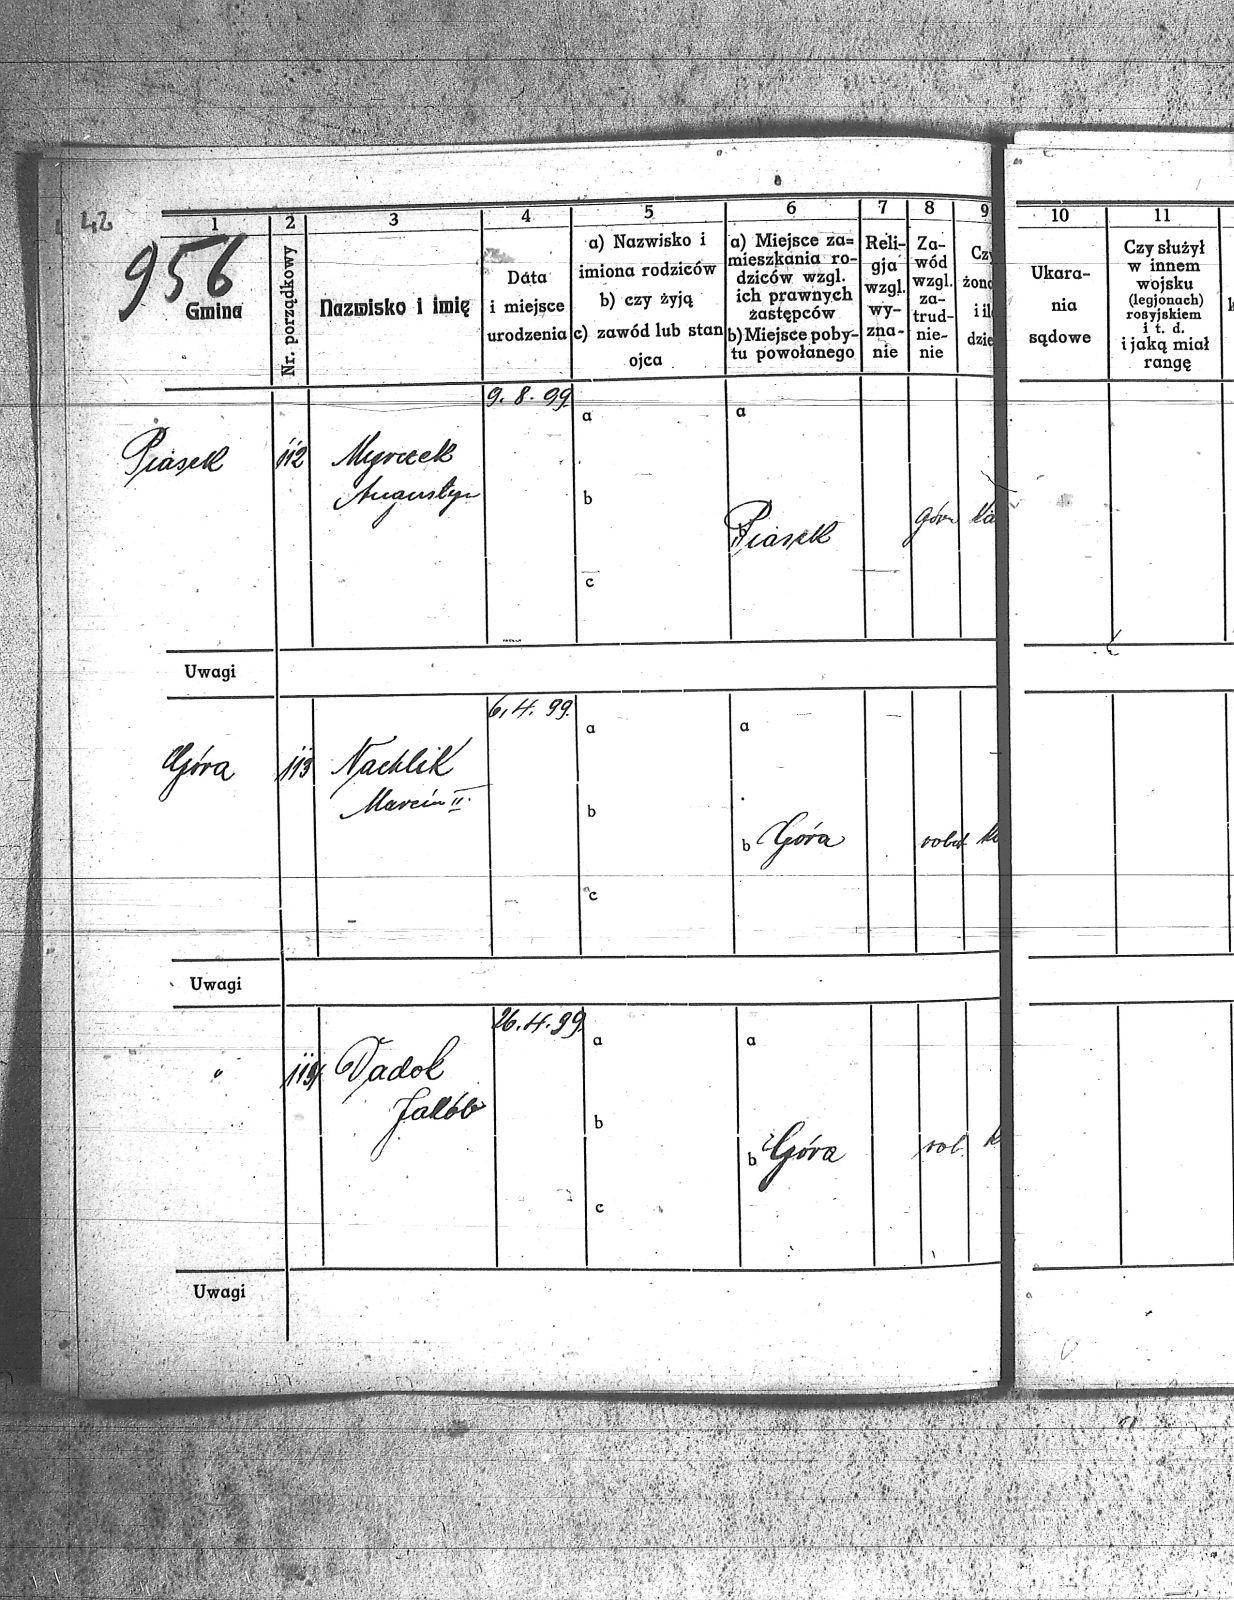 42
956
1 2 3 4 5 6 7 8 9 10 11
Gmina
Nr. porządkowy
Nazwisko i imię
Data
i miejsce
urodzenia
a) Nazwisko i
imiona rodziców
b) czy żyją
c) zawód lub stan
ojca
a) Miejsce za=
mieszkania ro-
dziców wzgl.
ich prawnych
zastępców
b) Miejsce poby-
tu powołanego
Reli-
gja
wzgl.
wy-
zna-
nie
Za-
wód
wzgl.
za-
trud-
nie-
nie
Cz
żona
i il
dzie
Ukara-
nia
sądowe
Czy służył
w innem
wojsku
(legjonach)
rosyjskiem
i t. d.
i jaką miał
rangę
9. 8. 99.
a a
Piasek 112 Myrczek
Augustyn
b
Piasek górn ka
c
Uwagi
6. 4. 99.
a a
Góra 113 Nachlik
Marcin II.
b b Góra robot k
c
Uwagi
26. 4. 99.
a a
" 114 Dadok
Jakób
b b Góra rob. k
c
Uwagi